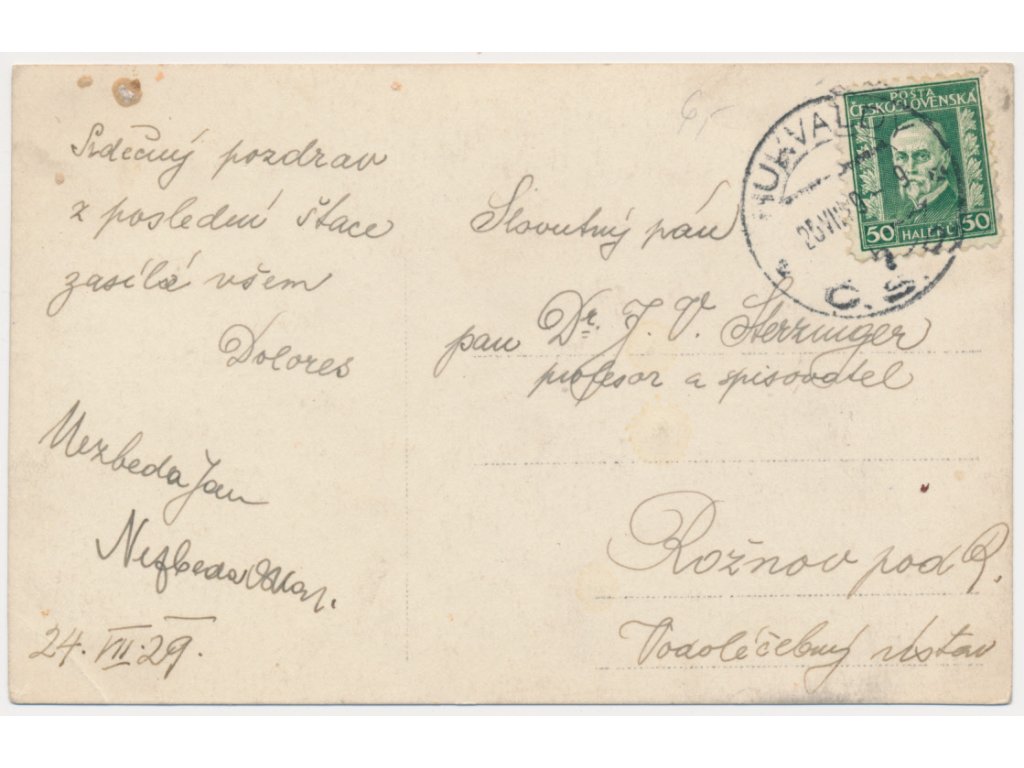 Srdečný pozdrav
z poslední štace
zasílá všem
Dolores
Nezbeda Jan
Nezbeda
24. VII. 29.
6,-
POŠTA
ČESKOSLOVENSKÁ
50 HALÉŘŮ 50
HUKVALDY
25.VII
Č.S.
Slovutný pán
pan Dr. J. V. Sterzinger
profesor a spisovatel
Rožnov pod R.
Vodoléčebný ústav